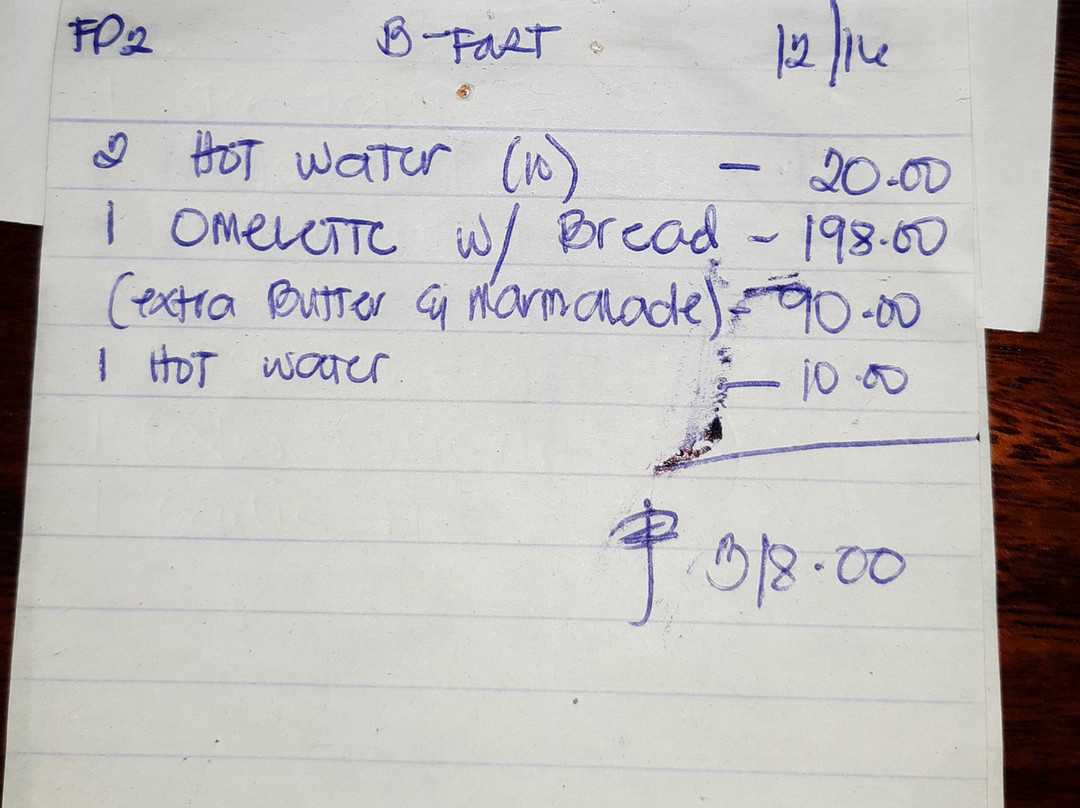 FD2 B-FaST 12/14
2 HOT WaTer (10) - 20.00
1 OMeLeTTe w/ Bread - 198.00
(extra Butter & Marmalade) - 90.00
1 HOT water - 10.00
₱ 318.00